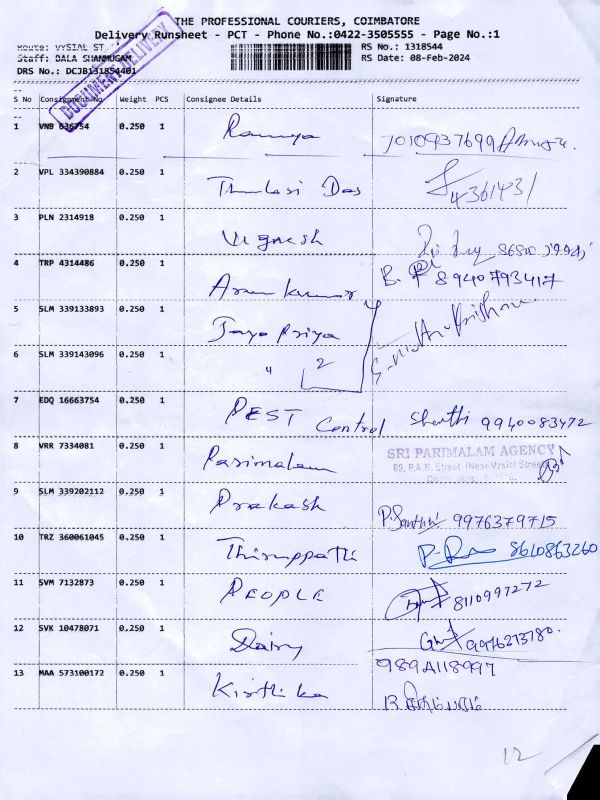 THE PROFESSIONAL COURIERS, COIMBATORE
Delivery Runsheet - PCT - Phone No.:0422-3505555 - Page No.:1
Route: VYSIAL ST
RS No.: 1318544
Staff: BALA SHANMUGAM
RS Date: 08-Feb-2024
DRS No.: DCJB131854401
DOCUMENT DELIVERY
S No Consignment No Weight PCS Consignee Details Signature
1 VNB 636754 0.250 1 Ramya 7010937699
2 VPL 334390884 0.250 1 Thulasi Das
3 PLN 2314918 0.250 1 Vignesh
4 TRP 4314486 0.250 1 Arun kumar 8940793417
5 SLM 339133893 0.250 1 Jaya Priya
6 SLM 339143096 0.250 1 " 2
7 EDQ 16663754 0.250 1 PEST Control Shanthi 9940083472
8 VRR 7334081 0.250 1 Parimalam
SRI PARIMALAM AGENCY
89, P.A.K. Street (Near Vysial Street)
9 SLM 339202112 0.250 1 Prakash P. Santhi 9976379715
10 TRZ 360061045 0.250 1 Thiruppathi 8610863260
11 SVM 7132873 0.250 1 PEOPLE 8110997272
12 SVK 10478071 0.250 1 Dairy 9976213780.
13 MAA 573100172 0.250 1 Kirthika 9894118997
12